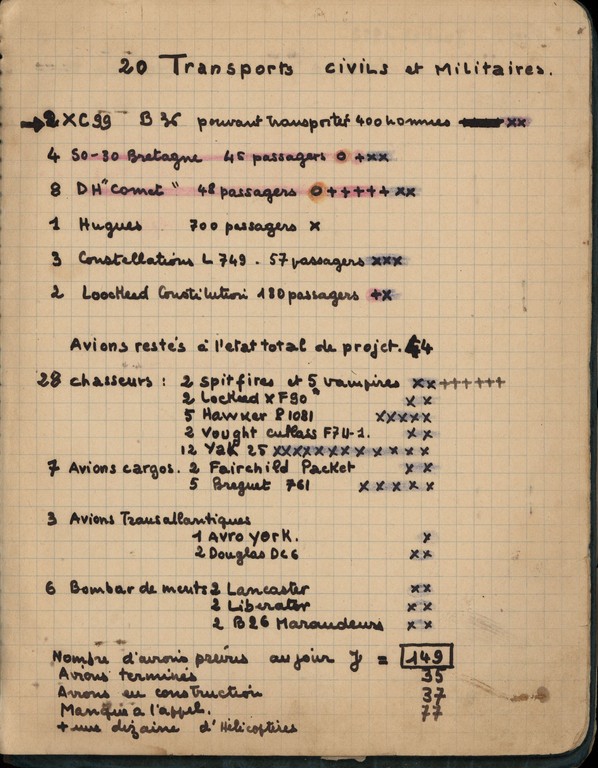 20 Transports civils et Militaires.
2 XC 99 B 36 pouvant transporter 400 hommes xx
4 SO-30 Bretagne 45 passagers o +xx
8 DH "Comet" 48 passagers o +++++ xx
1 Hugues 700 passagers x
3 Constellations L 749 . 57 passagers xxx
2 Loockeed Constitution 180 passagers +x
Avions restés à l'etat total de projet. 44
28 chasseurs : 2 spitfires et 5 vampires xx++++++
2 Lockeed XF90 x x
5 Hawker P 1081 xxxxx
2 Vought cutlass F7U-1. x x
12 Yak 25 xxxxxxxxxxxx
7 Avions cargos. 2 Fairchild Packet x x
5 Breguet 761 x x x x x
3 Avions Transatlantiques
1 Avro York. x
2 Douglas Dc6 x x
6 Bombardements 2 Lancaster x x
2 Liberator x x
2 B26 Maraudeurs x x
Nombre d'avions prévus au jour J = 149
Avions terminés 35
Avions en construction 37
Manque a l'appel. 77
+ une dizaine d'Hélicoptères